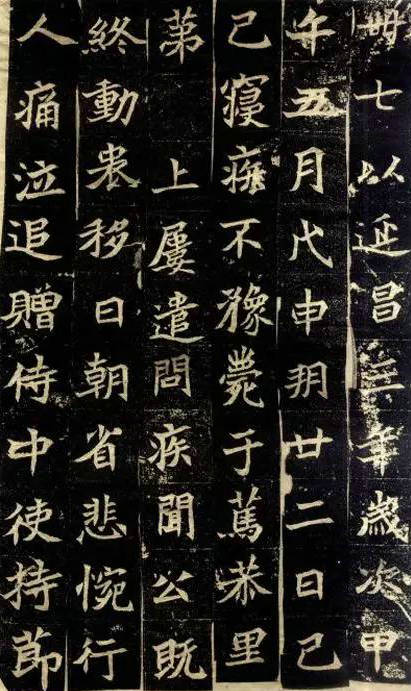 七以延昌三年歲次甲
午五月戊申朔廿二日己
巳寢疾不豫薨于篤恭里
第 上屢遣問疾聞公既
終動哀移日朝省悲惋行
人痛泣追贈侍中使持節